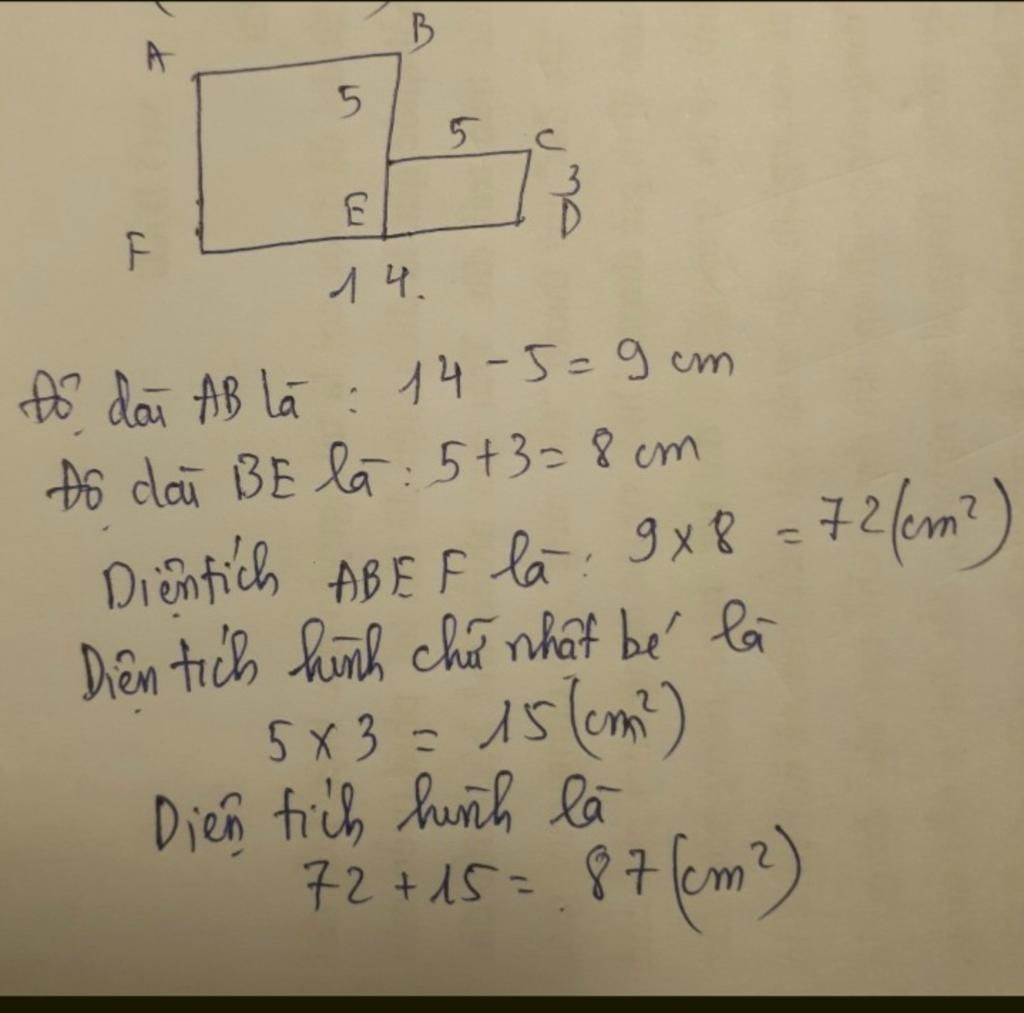 A
B
5
5
C
3
E
D
F
14.
Độ dài AB là : 14 - 5 = 9 cm
Độ dài BE là : 5+3 = 8 cm
Diện tích ABEF là : 9 x 8 = 72 (cm²)
Diện tích hình chữ nhật bé là
5 x 3 = 15 (cm²)
Diện tích hình là
72 + 15 = 87 (cm²)